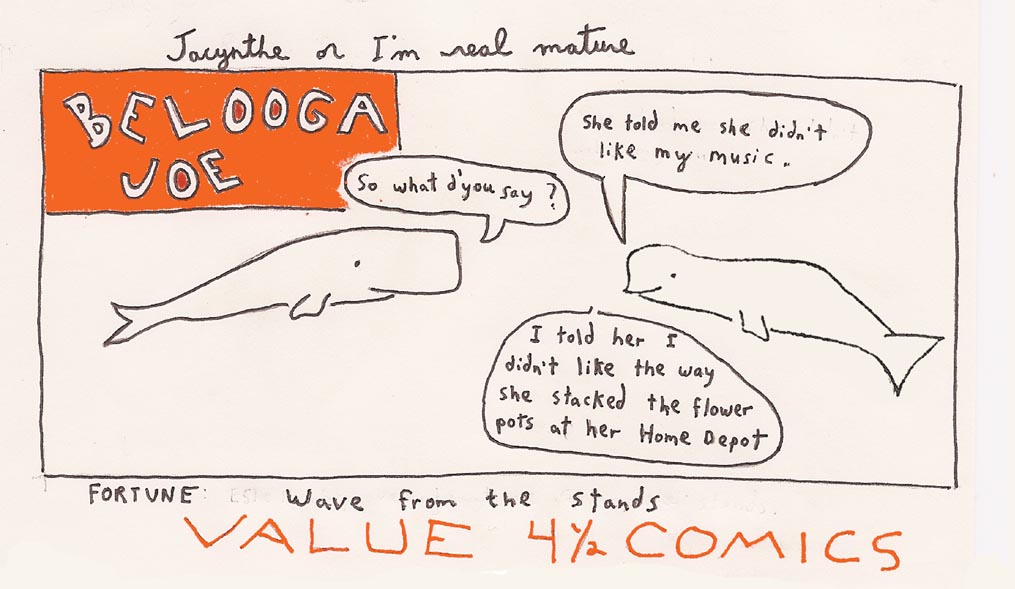 Jacynthe or I'm real mature
BELOOGA
JOE
She told me she didn't
like my music.
So what d'you say ?
I told her I
didn't like the way
she stacked the flower
pots at her Home Depot
FORTUNE: Wave from the stands
VALUE 4½ COMICS